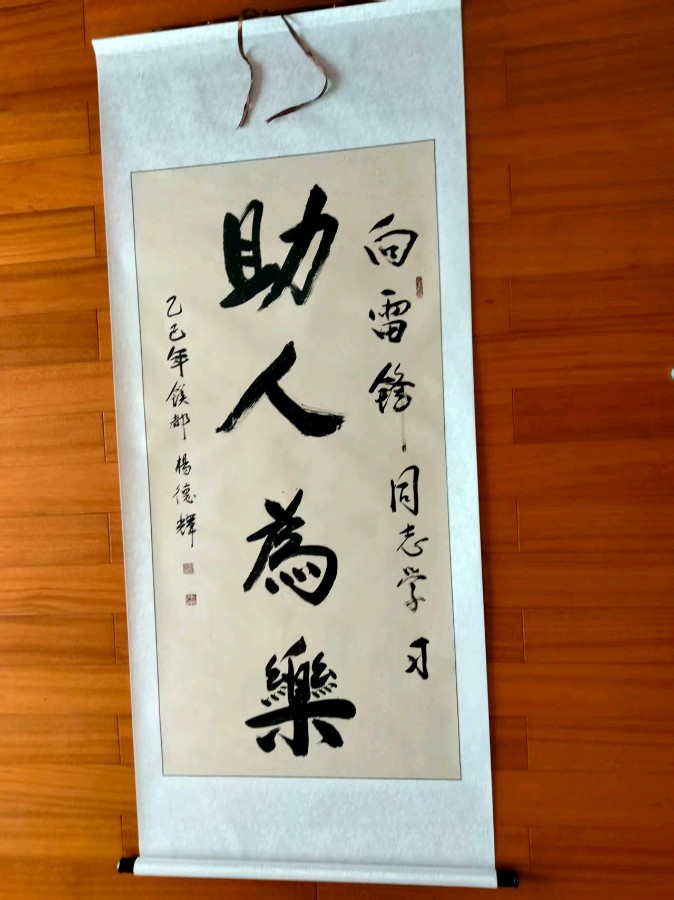 向雷锋同志学习
助人為樂
乙巳年镁都楊德輝